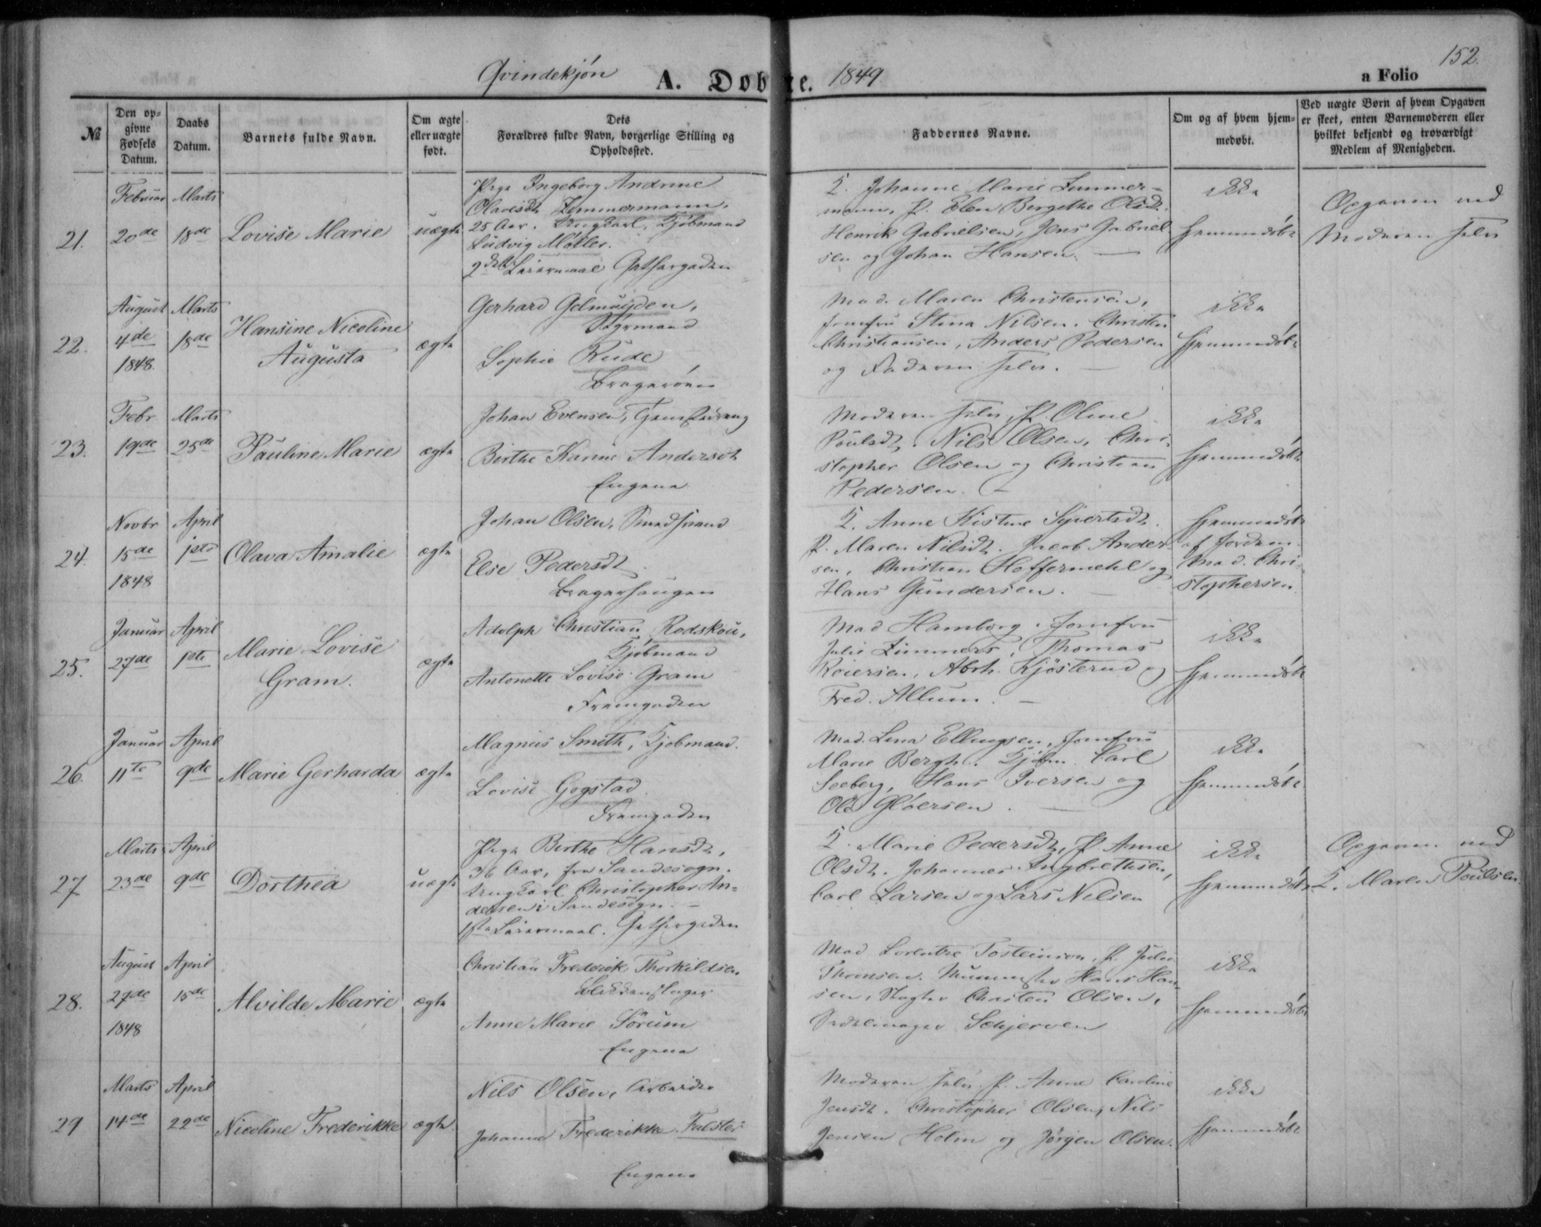 152.
Qvindekjøn A. Døbte. 1849 a Folio
№
Den opgivne Fødsels Datum.
Daabs Datum.
Barnets fulde Navn.
Om ægte eller uægte født.
Dets Forældres fulde Navn, borgerlige Stilling og Opholdssted.
Faddernes Navne.
Om og af hvem hjemmedøbt.
Ved uægte Børn af hvem Opgaven er skeet, enten Barnemoderen eller hvilket bekjendt og troværdigt Medlem af Menigheden.
21.
Februar
20de
Marts
18de
Lovise Marie
uægte
Pige Ingeborg Andrine
Olavesdt. Zimmermann,
25 Aar. Ungkarl, Kjøbmand
Ludvig Møller.
2det Leiermaal
K. Johanne Marie Zimmer-
mann, P. Elen Birgithe Olsd.
Henrik Gabrielsen, Jens Gabriel
sen og Johan Hansen.
ikke
hjemmedøbt
Opgaven ved
Moderen selv
22.
August
4de
1848.
Marts
18de
Hansine Nicoline
Augusta
ægte
Gerhard Gelmuyden,
Styrmand
Sophie Rude
Bragerøen
Mad. Maren Christensen,
Jomfru Stina Nilsen. Christen
Christiansen, Anders Pedersen
og Faderen selv.
ikke
hjemmedøbt
23.
Febr
19de
Marts
25de
Pauline Marie
ægte
Johan Evensen,
Birthe Karine Andersdt
Engene
Moderen selv, P. Oline
Poulsdt, Nils Olsen, Chri-
stopher Olsen og Christian
Pedersen.
ikke
hjemmedøbt
24.
Novbr
15de
1848
April
1ste
Olava Amalie
ægte
Johan Olsen, Smedsvend
Else Pedersdt.
Bragerhaugen
K. Anne Kistine Syvertsdt.
P. Maren Nilsdt. Jacob Ander
sen, Christian Hoffermehl og
Hans Gundersen.
hjemmedøbt
af Jordem.
Mad. Chri-
stophersen
25.
Januar
27de
April
1ste
Marie Lovise
Gram.
ægte
Adolph Christian Rodskou,
Kjøbmand
Antonette Lovise Gram
Fremgaden
Mad Hamborg. Jomfru
Julie Zimmers, Thomas
Koiersen, Abrh. Kjøsterud og
Fred. Allum.
ikke
hjemmedøbt
26.
Januar
11te
April
9de
Marie Gerharda
ægte
Magnus Smith, Kjøbmand.
Lovise Gogstad.
Fremgaden
Mad. Lena Ellingsen, Jomfru
Marie Bergh. Kjøbm. Carl
Seeberg, Hans Iversen og
Ole Gløersen.
ikke
hjemmedøbt
27
Marts
23de
April
9de
Dorthea
uægte
Pige Birthe Hansdt.,
36 Aar, fra Sandesogn.
Ungkarl Christopher An-
dersen i Sandesogn.
1ste Leiermaal.
K. Marie Pedersdt, P. Anne
Olsdt. Johannes Ingbrethsen,
Carl Larsen og Lars Nilsen
ikke
hjemmedøbt
Opgaven ved
K. Maren Poulsen
28.
August
27de
1848
April
15de
Alvilde Marie
ægte
Christian Frederik Thorkildsen
Blikkenslager
Anne Marie Sørum
Engene
Mad Lorentze Tosteinson, P. Julie
Thomsen. Muurmester Hans Han
sen, Slagter Christen Olsen,
Sadelmager Schjerven
ikke
hjemmedøbt
29
Marts
14de
April
22de
Nicoline Frederikke
ægte
Nils Olsen, Arbeider
Johanne Frederikke
Engene
Moderen selv P. Anne Caroline
Jensdt. Christopher Olsen, Nils
Jensen Holm og Jørgen Olsen.
ikke
hjemmedøbt